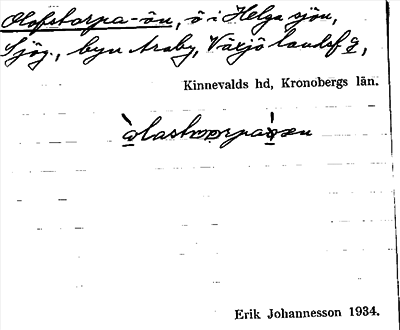 Olofstorpa-ön, ö i Helga sjön,
Sjög., byn Araby, Växjö landsf g,
Kinnevalds hd, Kronobergs län.
Erik Johannesson 1934.